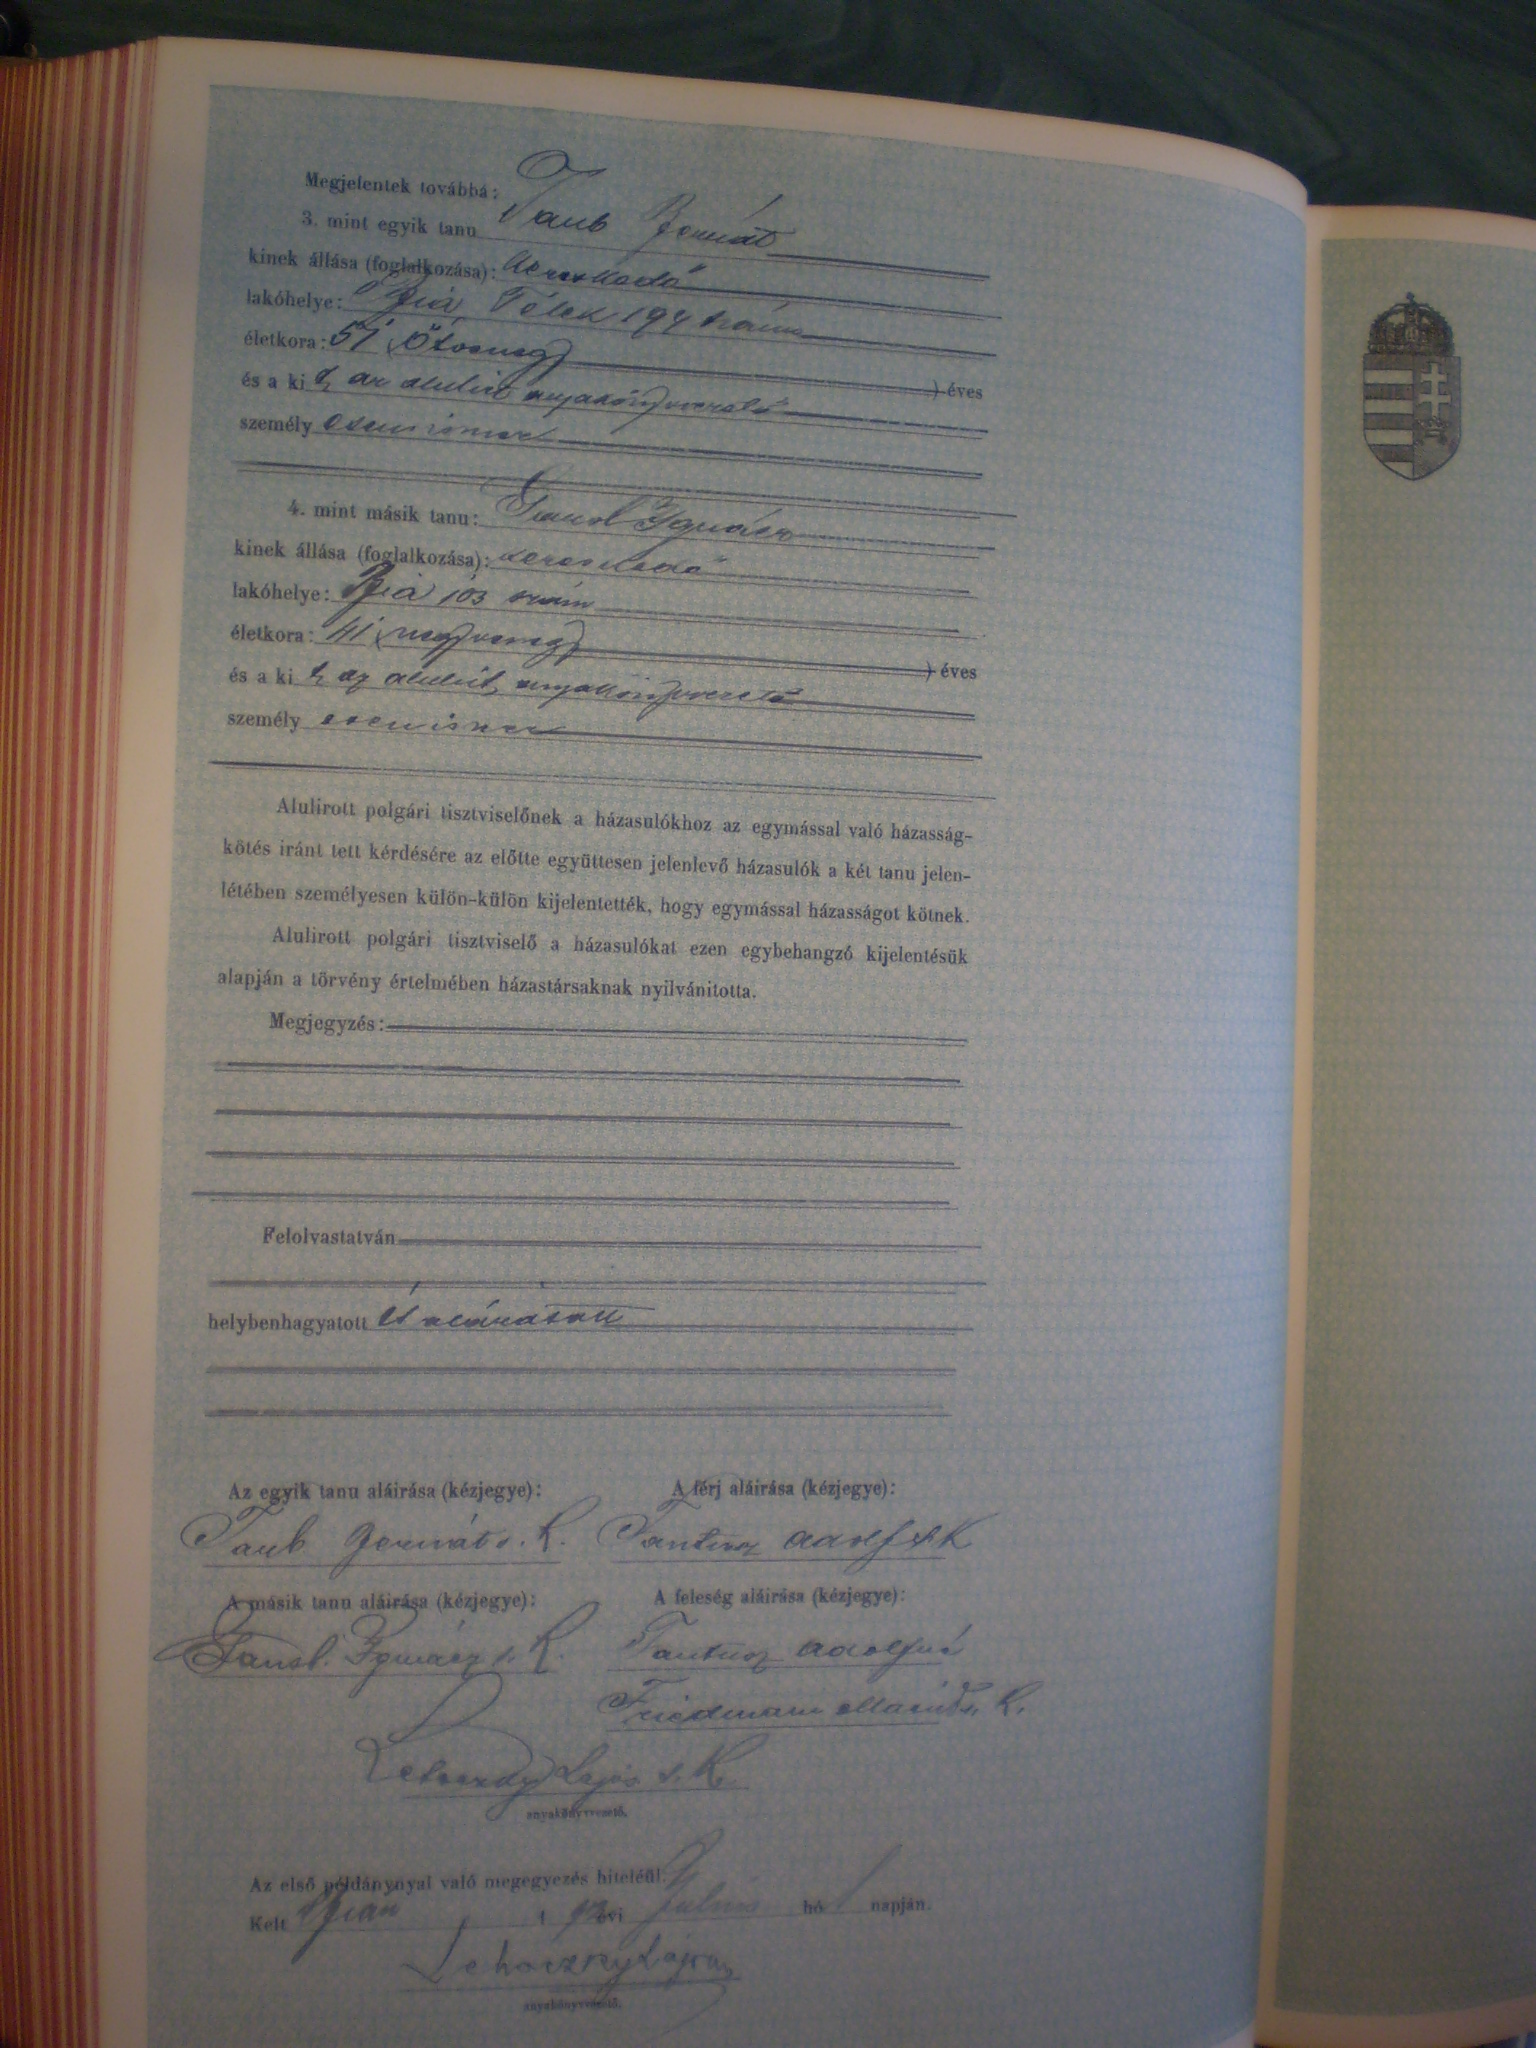 Megjelentek továbbá:
3. mint egyik tanu Taub Bernát
kinek állása (foglalkozása): kereskedő
lakóhelye: Bia, Télek 194 szám
életkora: 51 (ötvenegy) éves
és a ki t, az alulírt anyakönyvvezető
személy esen ismer
4. mint másik tanu: Ignácz
kinek állása (foglalkozása): kereskedő
lakóhelye: Bia 103 szám
életkora: 41 (negyvenegy) éves
és a ki t, az alulírt anyakönyvvezető
személy esen ismer
Alulirott polgári tisztviselőnek a házasulókhoz az egymással való házasság-
kötés iránt tett kérdésére az előtte együttesen jelenlevő házasulók a két tanu jelen-
létében személyesen külön-külön kijelentették, hogy egymással házasságot kötnek.
Alulirott polgári tisztviselő a házasulókat ezen egybehangzó kijelentésük
alapján a törvény értelmében házastársaknak nyilvánitotta.
Megjegyzés:
Felolvastatván
helybenhagyatott és aláíratott
Az egyik tanu aláirása (kézjegye):
A férj aláirása (kézjegye):
Taub Bernát s. k.
Adolf s k
A másik tanu aláirása (kézjegye):
A feleség aláirása (kézjegye):
Ignácz s. k.
Adolfné
Friedmann s. k.
Lehoczky Lajos s. k.
anyakönyvvezető.
Az első példánynyal való megegyezés hiteléül.
Kelt Bián 1 évi Julius hó 1 napján.
Lehoczky Lajos
anyakönyvvezető.